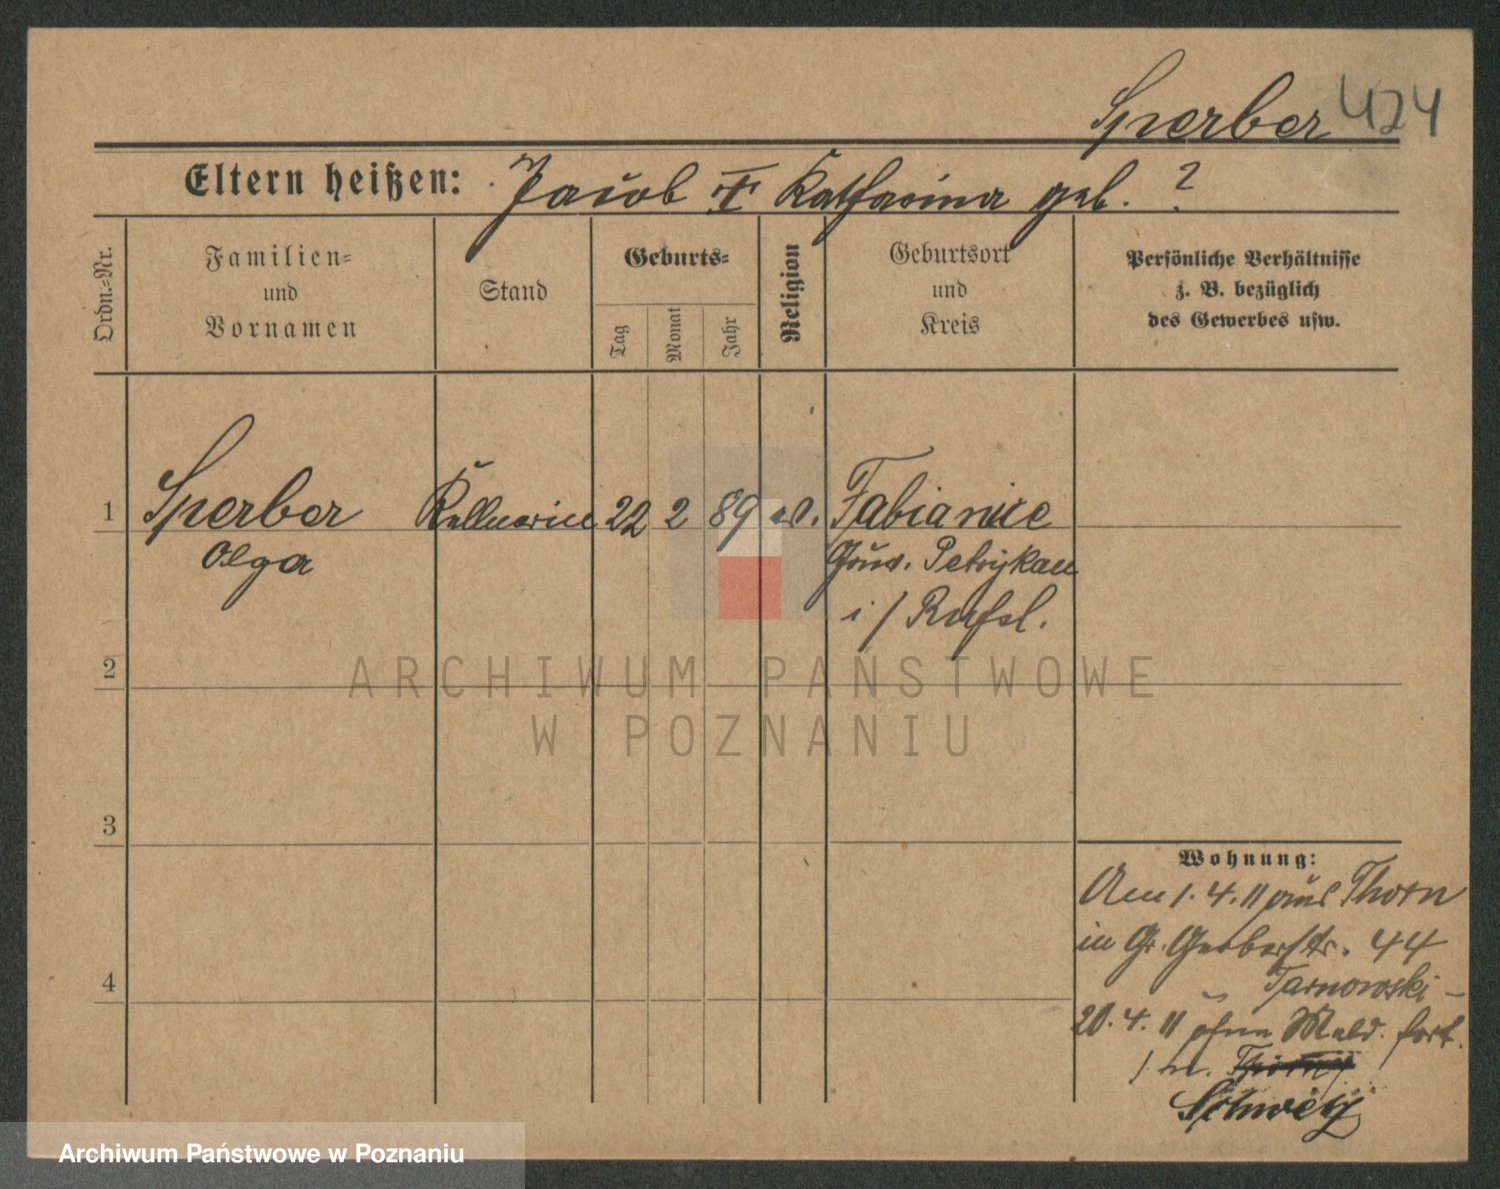 Sperber 424
Eltern heißen: Jacob u Katharina geb. ?
Ordn.=Nr.
Familien=
und
Vornamen
Stand
Geburts=
Tag
Monat
Jahr
Religion
Geburtsort
und
Kreis
Persönliche Verhältnisse
z. B. bezüglich
des Gewerbes usw.
1 Sperber Kellnerin 22 2 89 ev. Fabianice
Olga Gouv. Petrykau
i/ Rußl.
2
ARCHIWUM PAŃSTWOWE
W POZNANIU
3
Wohnung:
Am 1. 4. 11 aus Thorn
in Gr. Gerberstr. 44
4
Tarnowski -
20. 4. 11 ohne Meld. fort.
/ n. Thorn
Schwetz
Archiwum Państwowe w Poznaniu